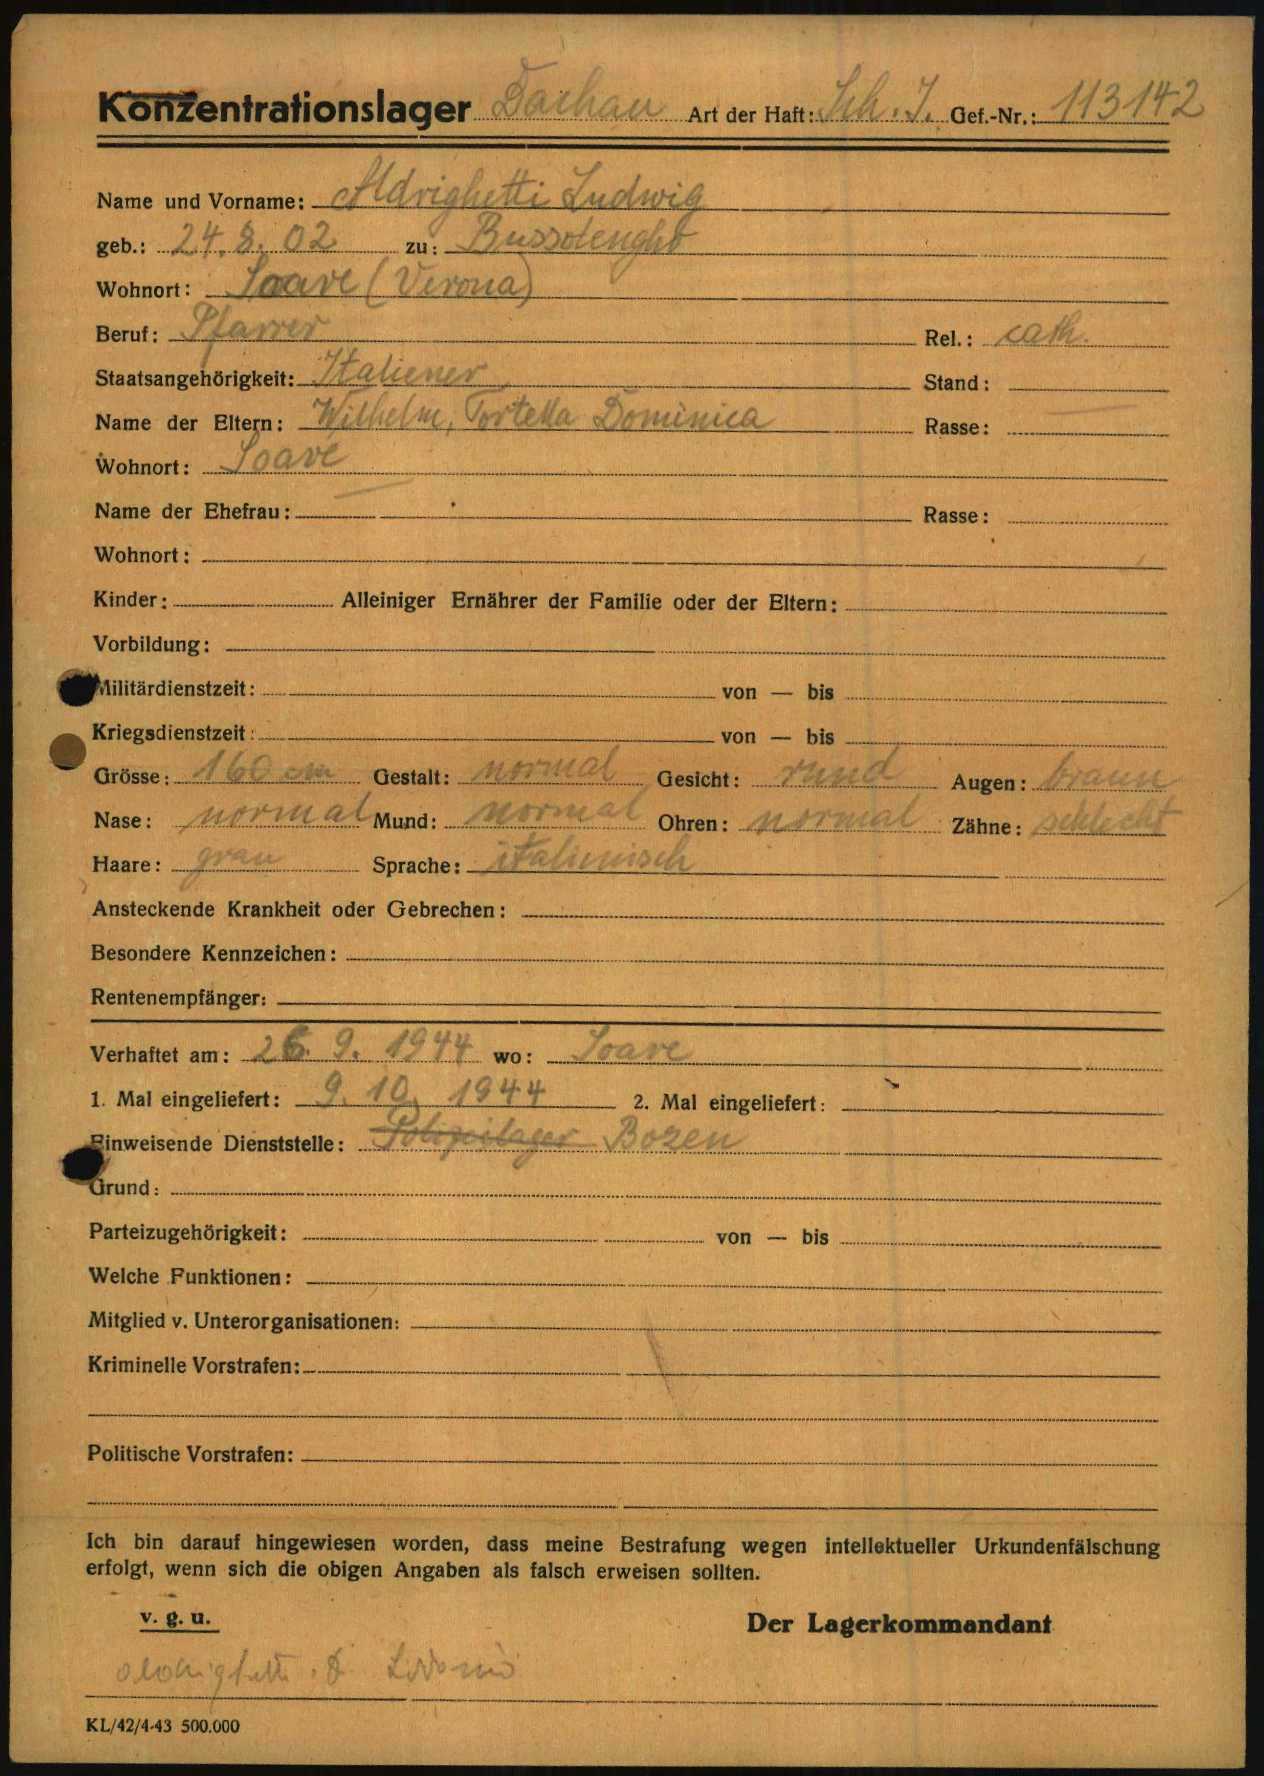 Konzentrationslager Dachau Art der Haft: Sch. I. Gef.-Nr.: 113142
Name und Vorname: Aldrighetti Ludwig
geb.: 24. 8. 02 zu: Bussolengho
Wohnort: Soave (Verona)
Beruf: Pfarrer Rel.: cath.
Staatsangehörigkeit: Italiener Stand:
Name der Eltern: Wilhelm, Tortella Dominica Rasse:
Wohnort: Soave
Name der Ehefrau: Rasse:
Wohnort:
Kinder: Alleiniger Ernährer der Familie oder der Eltern:
Vorbildung:
Militärdienstzeit: von — bis
Kriegsdienstzeit: von — bis
Grösse: 160 cm Gestalt: normal Gesicht: rund Augen: braun
Nase: normal Mund: normal Ohren: normal Zähne: schlecht
Haare: grau Sprache: italienisch
Ansteckende Krankheit oder Gebrechen:
Besondere Kennzeichen:
Rentenempfänger:
Verhaftet am: 26. 9. 1944 wo: Soave
1. Mal eingeliefert: 9. 10. 1944 2. Mal eingeliefert:
Einweisende Dienststelle: Polizeilager Bozen
Grund:
Parteizugehörigkeit: von — bis
Welche Funktionen:
Mitglied v. Unterorganisationen:
Kriminelle Vorstrafen:
Politische Vorstrafen:
Ich bin darauf hingewiesen worden, dass meine Bestrafung wegen intellektueller Urkundenfälschung
erfolgt, wenn sich die obigen Angaben als falsch erweisen sollten.
v. g. u. Der Lagerkommandant
Aldrighetti D.
KL/42/4-43 500.000